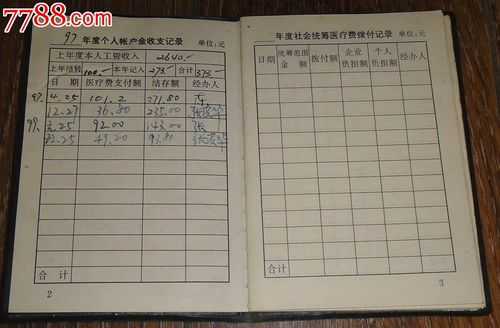 7788.com
97 年度个人帐户金收支记录 单位:元
上年度本人工资收入 2640.-
上年结转 100.- 本年记入 275.- 合计 375.-
日期 医疗费支付额 结存额 经办人
97. 4.25 101.2 271.80
12.27 36.80 235.00
99. 92.00 143.00 张
.25 49.20
合计
2
年度社会统筹医疗费拨付记录 单位:元
日期 统筹范围金额 拨付额 企业负担额 个人负担额 经办人
合计
3